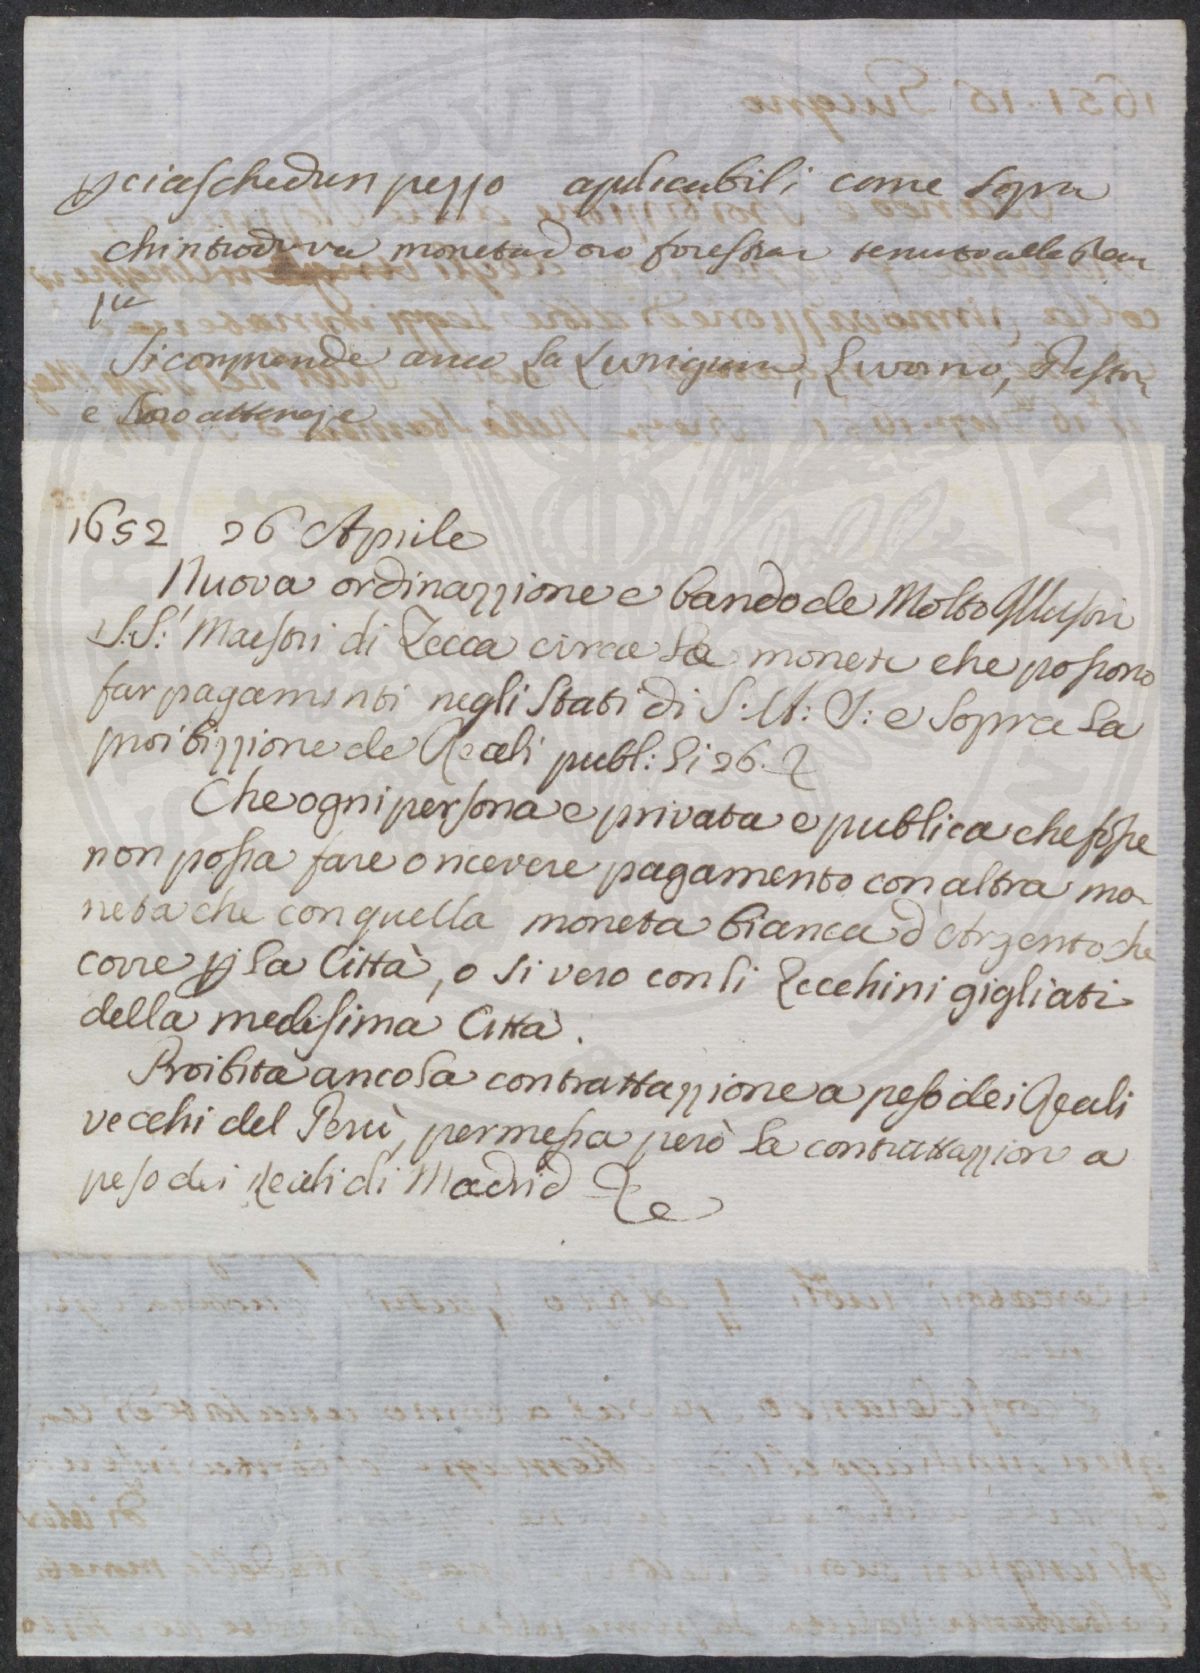 p ciaschedun pezzo applicabili come sopra
Chi introduceva moneta d oro forestier tenuto alla
Si comprende anco la Lunigiana, Livorno,
e loro attenenze
1652 26 Aprile
Nuova ordinazzione e bando de Molto Illustri
S:S:ri Maestri di Zecca circa la monete che possono
far pagamenti negli Stati di S: A: S: e sopra la
proibizzione de Reali publ: li 26.
Che ogni persona e privata e publica che fosse
non possa fare o ricevere pagamento con altra mo-
neta che con quella moneta bianca d'Argento che
corre p la Città, o si vero con li Zecchini gigliati
della medesima Città.
Proibita anco la contrattazzione a peso dei Reali
vecchi del Perù, permessa però la contrattazzion a
peso dei Reali di Madrid